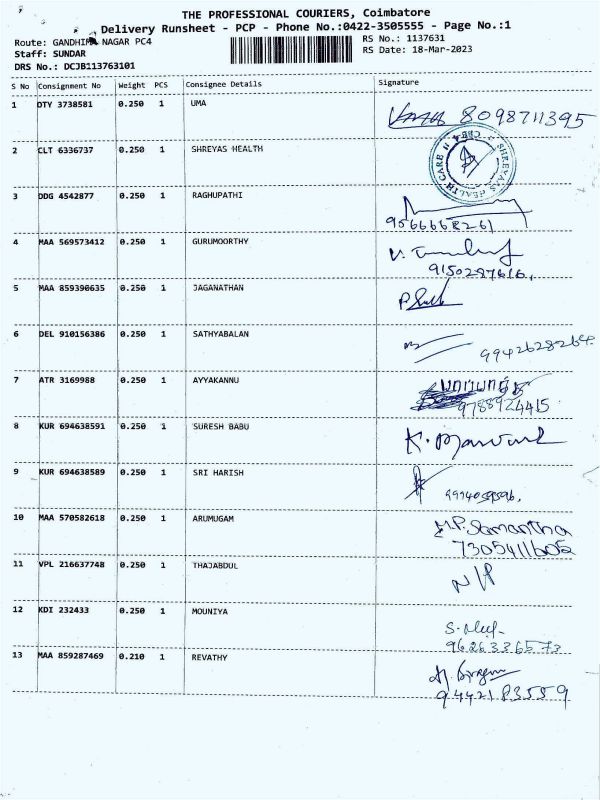 THE PROFESSIONAL COURIERS, Coimbatore
Delivery Runsheet - PCP - Phone No.:0422-3505555 - Page No.:1
Route: GANDHI NAGAR PC4
RS No.: 1137631
Staff: SUNDAR
RS Date: 18-Mar-2023
DRS No.: DCJB113763101
S No Consignment No Weight PCS Consignee Details Signature
1 DTY 3738581 0.250 1 UMA
8098711395
2 CLT 6336737 0.250 1 SHREYAS HEALTH
3 DDG 4542877 0.250 1 RAGHUPATHI
9566668261
4 MAA 569573412 0.250 1 GURUMOORTHY
9150287616.
5 MAA 859390635 0.250 1 JAGANATHAN
6 DEL 910156386 0.250 1 SATHYABALAN
9942628264.
7 ATR 3169988 0.250 1 AYYAKANNU
9788924415
8 KUR 694638591 0.250 1 SURESH BABU
9 KUR 694638589 0.250 1 SRI HARISH
10 MAA 570582618 0.250 1 ARUMUGAM
M.P. Samantha
7305411605
11 VPL 216637748 0.250 1 THAJABDUL
N/P
12 KDI 232433 0.250 1 MOUNIYA
9626336573
13 MAA 859287469 0.210 1 REVATHY
9442183559